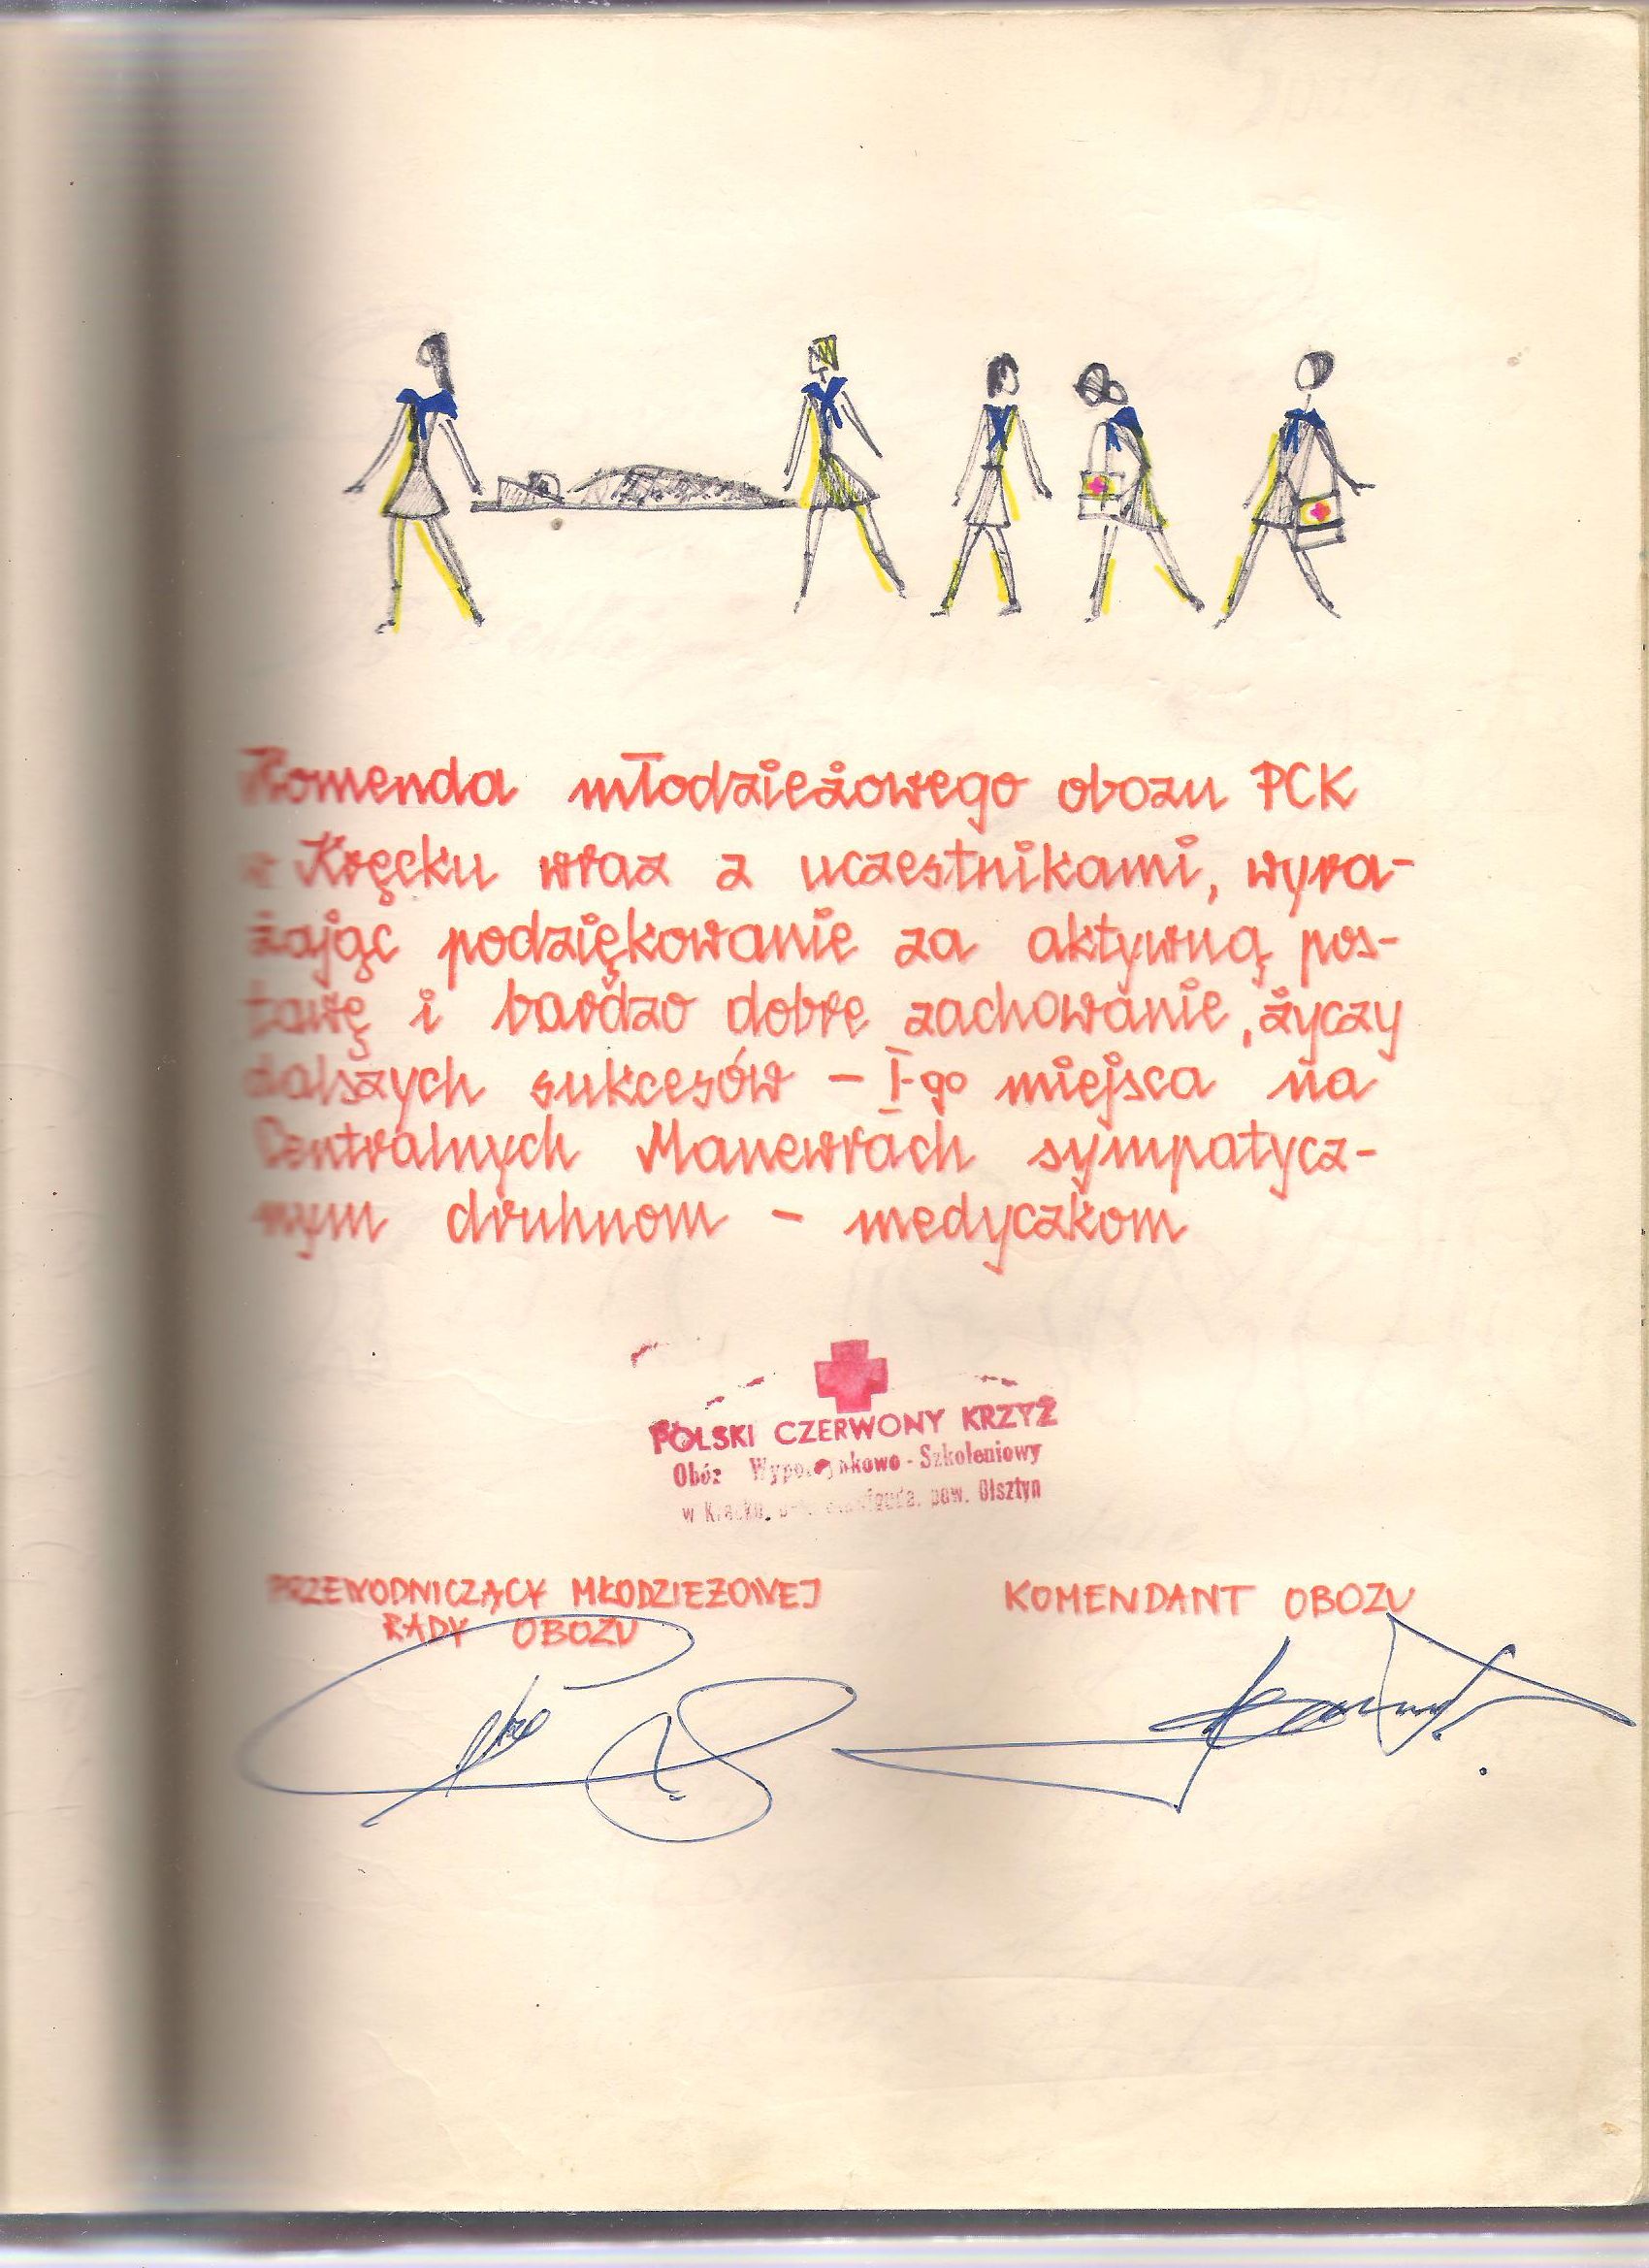 Komenda młodzieżowego obozu PCK
w Kręcku wraz z uczestnikami, wyra-
żając podziękowanie za aktywną pos-
tawę i bardzo dobre zachowanie, życzy
dalszych sukcesów – I-go miejsca na
Centralnych Manewrach sympatycz-
nym druhnom – medyczkom
POLSKI CZERWONY KRZYŻ
Obóz Szkoleniowy
w pow. Olsztyn
PRZEWODNICZĄCY MŁODZIEŻOWEJ
RADY OBOZU
KOMENDANT OBOZU